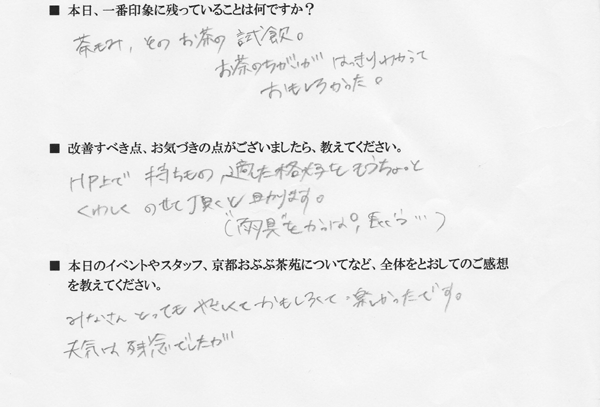 ■ 本日、一番印象に残っていることは何ですか？
茶もみ, そのお茶の試飲。
お茶のちがいが はっきりわかって
おもしろかった。
■ 改善すべき点、お気づきの点がございましたら、教えてください。
HP上で 持ちもの, 適した格好を もうちょっと
くわしく のせて頂くと 助かります。
("雨具"を かっぱ,
■ 本日のイベントやスタッフ、京都おぶぶ茶苑についてなど、全体をとおしてのご感想
を教えてください。
みなさん とっても やさしくて おもしろくて 楽しかったです。
天気は 残念でしたが